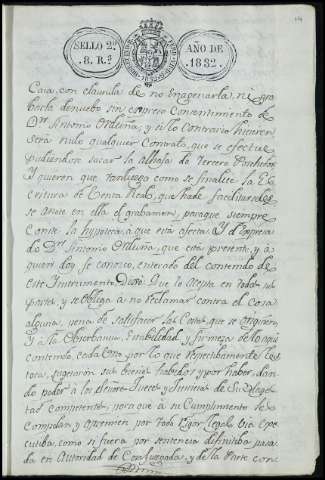 SELLO 2º AÑO DE
8. R.ˢ 1832.
Caja, con clausula de no enagenarla, ni gra
barla de nuebo sin expreso Consentimiento de
Dⁿ Antonio Orduña, y si lo Contrario hicieren
será nulo qualquier Contrato, que se efectue
pudiendose sacar la Alhaja de tercero Posehedor
Y quieren que tan luego como se finalice la Es
critura de Venta Real, que ha de facilitarseles
se anote en ella el grabamen, para que siempre
Conste la hypoteca, a que esta afecta. Y el expresa
do Dⁿ Antonio Orduña, que esta presente, y a
quien doy fe conozco, enterado del contenido de
este Instrumento, Dixo: Que lo acepta en todas sus
partes, y se obliga a no reclamar contra el cosa
alguna, pena de satisfacer las Costas, que se originen
Y a la Observancia, Estabilidad, y firmeza de lo aqui
contenido, cada Otro por lo que respectibamente les
toca, sugetaron sus bienes habidos y por haber, dan
do poder a los Señores Jueces y Justicias de Su Mages
tad competentes, para que a su Cumplimiento les
compelan, y apremien por todo rigor legal, via exe
cutiba, como si fuera por sentencia definitiba pasa
da en Autoridad de Cosa juzgada, y de la Parte con